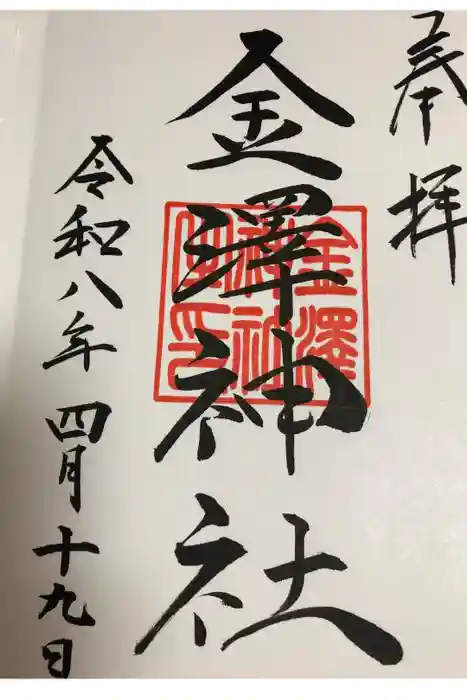 奉拝
金澤神社
金澤神社
令和八年四月十九日